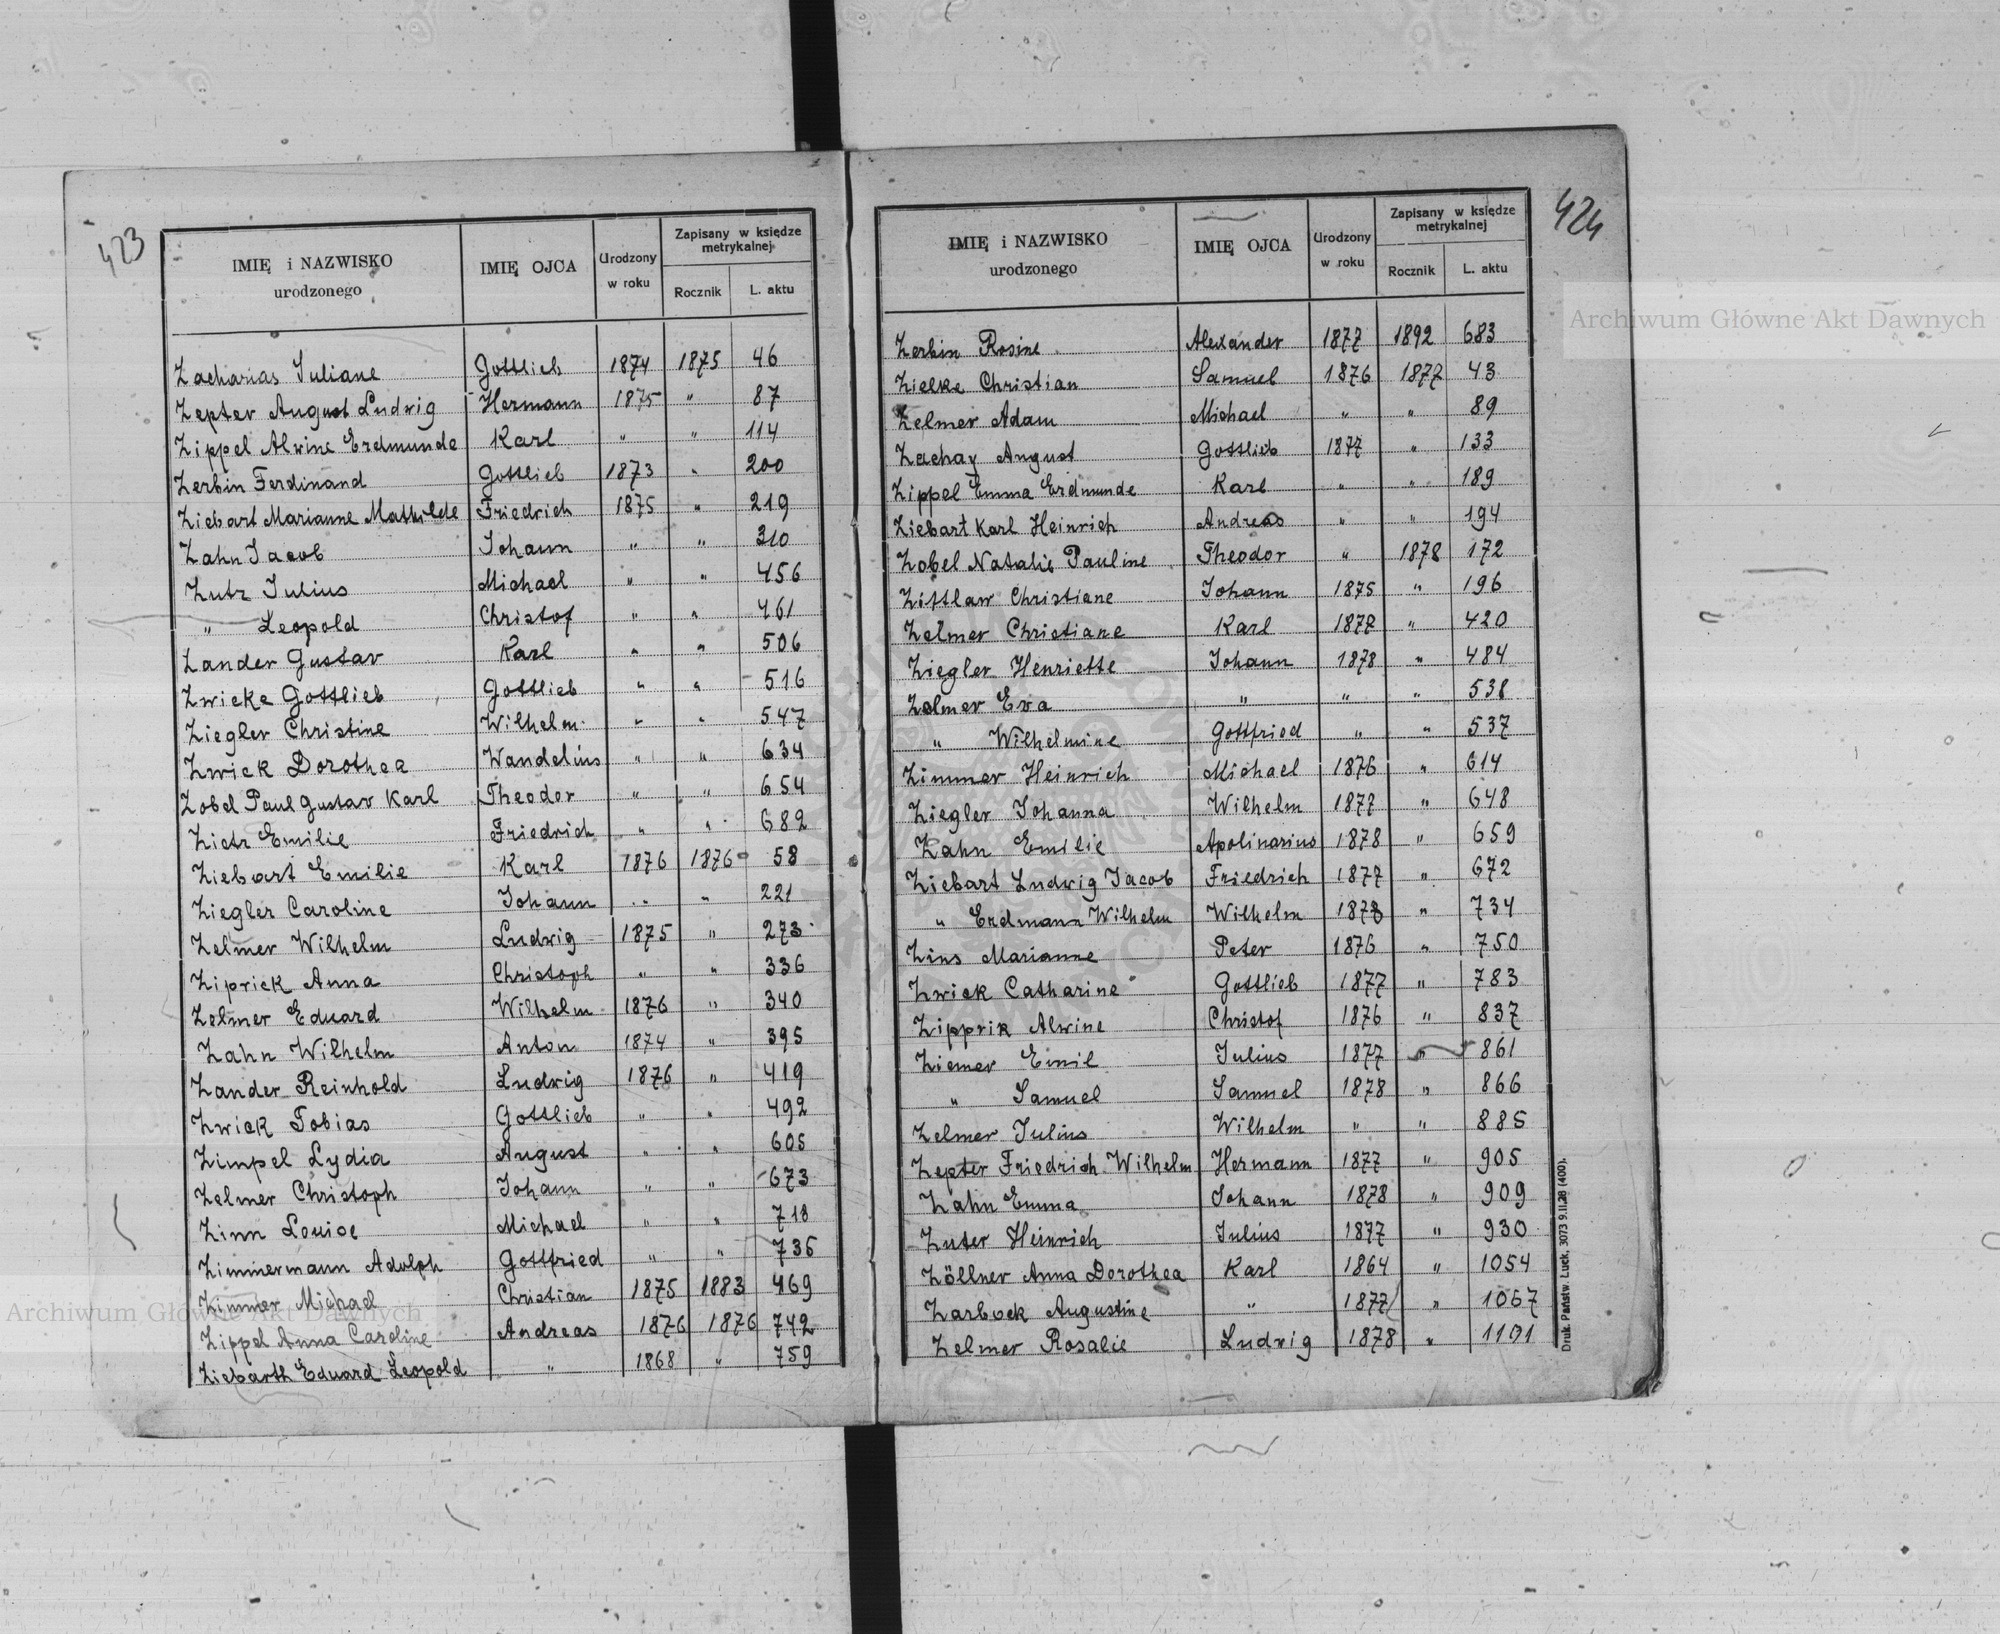 423
IMIĘ i NAZWISKO urodzonego | IMIĘ OJCA | Urodzony w roku | Zapisany w księdze metrykalnej
Rocznik | L. aktu
Zacharias Juliane | Gottlieb | 1874 | 1875 | 46
Zepter August Ludwig | Hermann | 1875 | " | 87
Zippel Alwine Erdmunde | Karl | " | " | 114
Zerbin Ferdinand | Gottlieb | 1873 | " | 200
Ziebart Marianne Mathilde | Friedrich | 1875 | " | 219
Zahn Jacob | Johann | " | " | 310
Zutz Julius | Michael | " | " | 456
" Leopold | Christof | " | " | 461
Zander Gustav | Karl | " | " | 506
Zwicke Gottlieb | Gottlieb | " | " | 516
Ziegler Christine | Wilhelm | " | " | 547
Zwick Dorothea | Wandelius | " | " | 634
Zobel Paul Gustav Karl | Theodor | " | " | 654
Zietz Emilie | Friedrich | " | " | 682
Ziebart Emilie | Karl | 1876 | 1876 | 58
Ziegler Caroline | Johann | " | " | 221
Zelmer Wilhelm | Ludwig | 1875 | " | 273
Ziprick Anna | Christoph | " | " | 336
Zelmer Eduard | Wilhelm | 1876 | " | 340
Zahn Wilhelm | Anton | 1874 | " | 395
Zander Reinhold | Ludwig | 1876 | " | 419
Zwick Tobias | Gottlieb | " | " | 492
Zimpel Lydia | August | " | " | 605
Zelmer Christoph | Johann | " | " | 673
Zinn Louise | Michael | " | " | 718
Zimmermann Adolph | Gottfried | " | " | 736
Zimmer Michael | Christian | 1875 | 1883 | 469
Zippel Anna Caroline | Andreas | 1876 | 1876 | 742
Ziebarth Eduard Leopold | " | 1868 | " | 759
424
IMIĘ i NAZWISKO urodzonego | IMIĘ OJCA | Urodzony w roku | Zapisany w księdze metrykalnej
Rocznik | L. aktu
Zerbin Rosine | Alexander | 1877 | 1892 | 683
Zielke Christian | Samuel | 1876 | 1877 | 43
Zelmer Adam | Michael | " | " | 89
Zachay August | Gottlieb | 1877 | " | 133
Zippel Emma Erdmunde | Karl | " | " | 189
Ziebart Karl Heinrich | Andreas | " | " | 194
Zobel Natalie Pauline | Theodor | " | 1878 | 172
Zittlaw Christiane | Johann | 1875 | " | 196
Zelmer Christiane | Karl | 1877 | " | 420
Ziegler Henriette | Johann | 1878 | " | 484
Zelmer Eva | " | " | " | 538
" Wilhelmine | Gottfried | " | " | 537
Zimmer Heinrich | Michael | 1876 | " | 614
Ziegler Johanna | Wilhelm | 1877 | " | 648
Zahn Emilie | Apolinarius | 1878 | " | 659
Ziebart Ludwig Jacob | Friedrich | 1877 | " | 672
" Erdmann Wilhelm | Wilhelm | 1878 | " | 734
Zins Marianne | Peter | 1876 | " | 750
Zwick Catharine | Gottlieb | 1877 | " | 783
Zipprik Alwine | Christof | 1876 | " | 837
Ziemer Emil | Julius | 1877 | " | 861
" Samuel | Samuel | 1878 | " | 866
Zelmer Julius | Wilhelm | " | " | 885
Zepter Friedrich Wilhelm | Hermann | 1877 | " | 905
Zahn Emma | Johann | 1878 | " | 909
Zuter Heinrich | Julius | 1877 | " | 930
Zöllner Anna Dorothea | Karl | 1864 | " | 1054
Zarbock Augustine | " | 1877 | " | 1067
Zelmer Rosalie | Ludwig | 1878 | " | 1101
Druk. Państw. Łuck, 3073 9.II.28 (400).
Archiwum Główne Akt Dawnych
Archiwum Główne Akt Dawnych